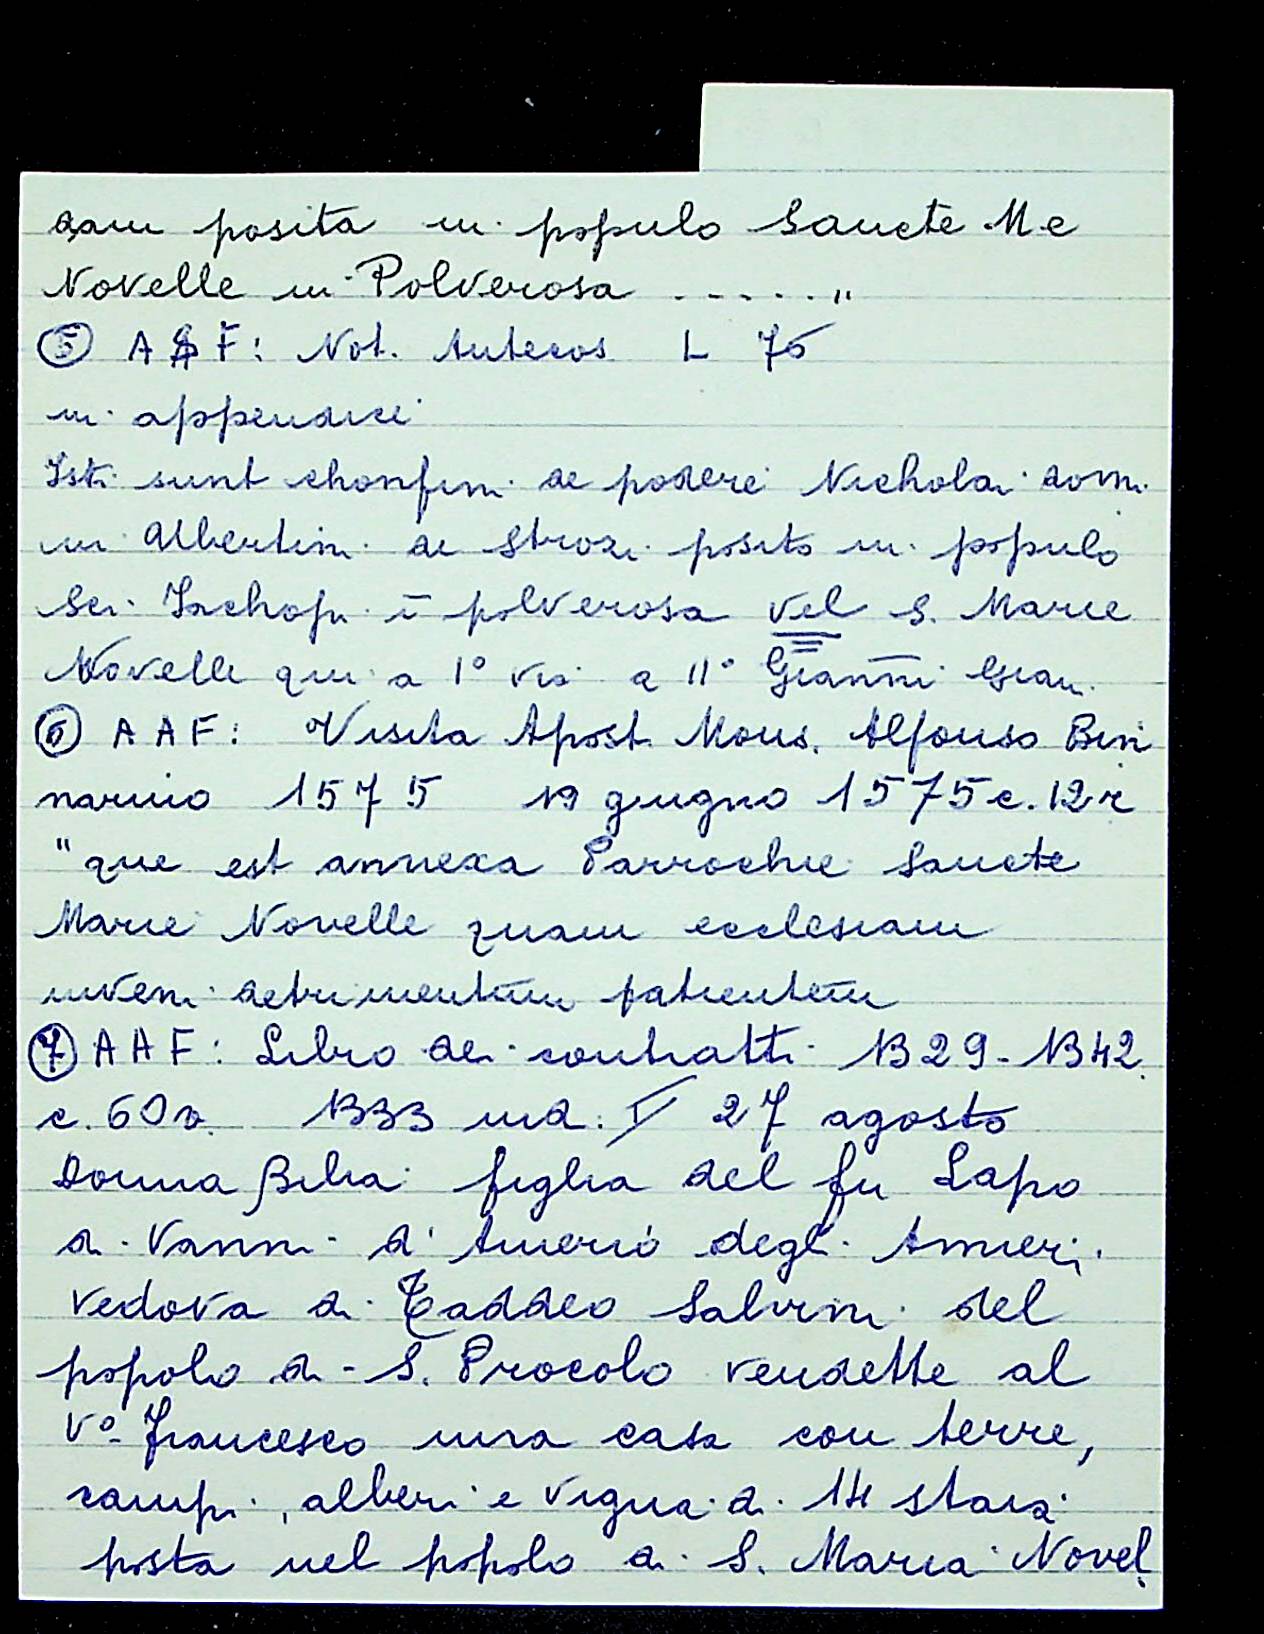 dam posita in populo Sancte M.e
Novelle in Polverosa ......"
⑤ ASF: Not. Antecos L 76
in appendice
Isti sunt chonfini de podere Nicholai domi
ni Albertini de Strozi posito in populo
Sci. Iachopi ī polverosa vel S. Marie
Novelle qui a I° via a II° Gianni Gian.
⑥ AAF: Visita Apost. Mons. Alfonso Bin
narino 1575 19 giugno 1575 c. 12r
"que est annexa Parrochie Sancte
Marie Novelle quam ecclesiam
inveni detrimentūm patientēm
⑦ AAF: Libro dei contratti 1329-1342
c. 60v. 1333 ind: I 27 agosto
Donna Bilia figlia del fu Lapo
di Vanni d'Amerio degli Amieri
vedova di Taddeo Salvini del
popolo di S. Procolo vendette al
V°. Francesco una casa con terre,
campi, alberi e vigna di 14 staia
posta nel popolo di S. Maria Novel